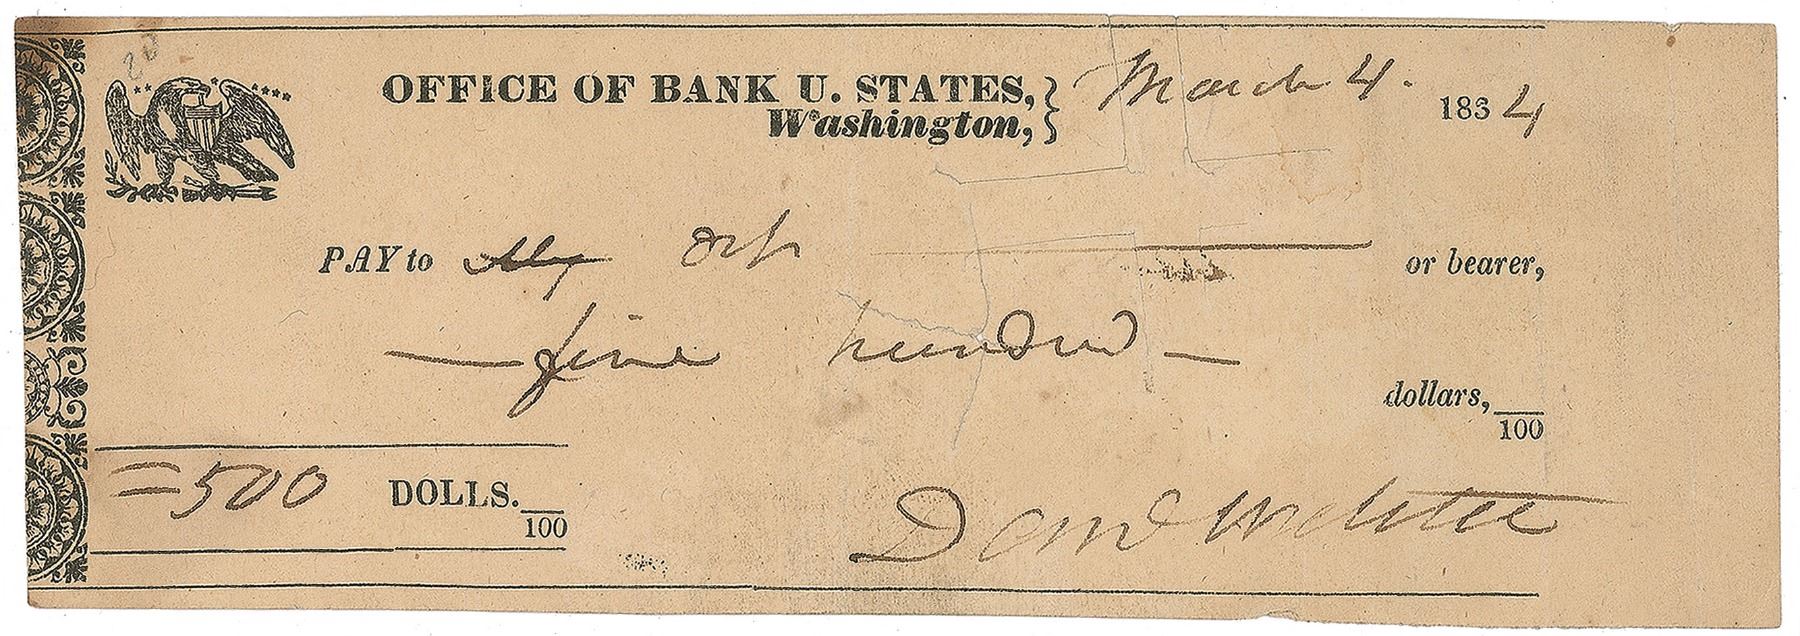 20
OFFICE OF BANK U. STATES, March 4. 1834
Washington,
PAY to or bearer,
five hundred
dollars, /100
= 500 DOLLS. /100
Danl Webster